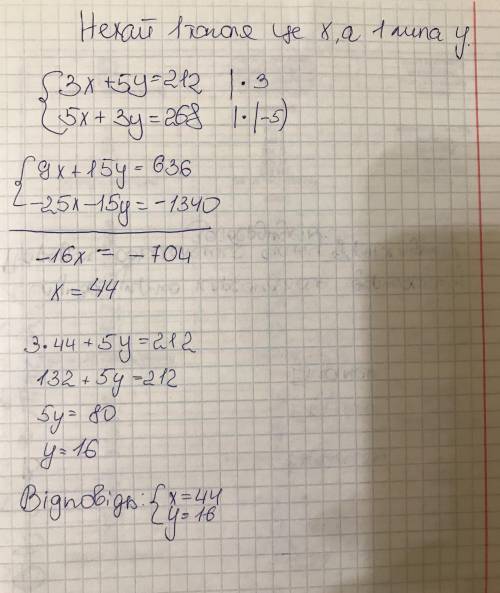 Нехай 1 тополя це x, а 1 липа y.
{3x+5y=212 |·3
{5x+3y=268 |·(-5)
{9x+15y=636
{-25x-15y=-1340
-16x = -704
x=44
3·44+5y=212
132+5y=212
5y=80
y=16
Відповідь: {x=44
{y=16